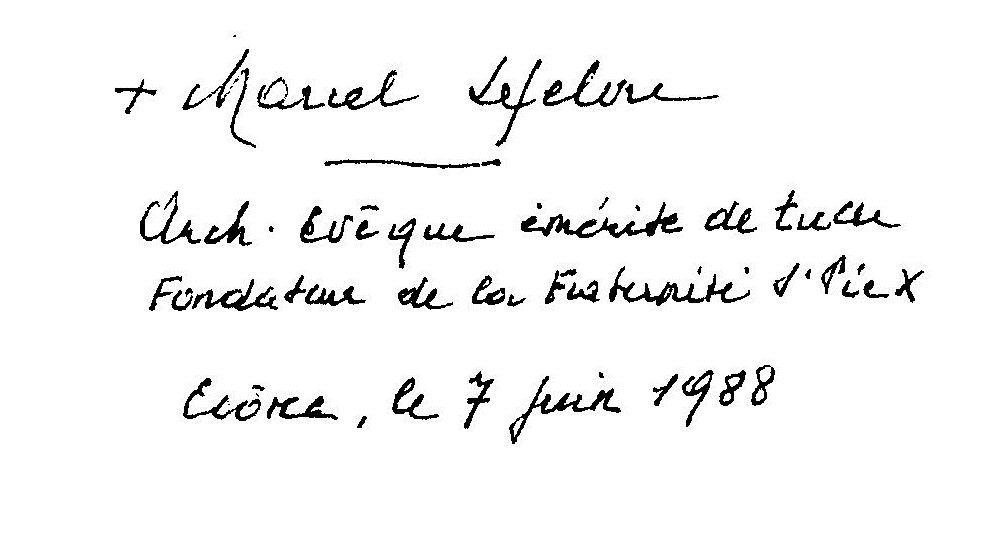 + Marcel Lefebvre
Arch. Evêque émérite de Tulle
Fondateur de la Fraternité St Pie X
Ecône, le 7 juin 1988